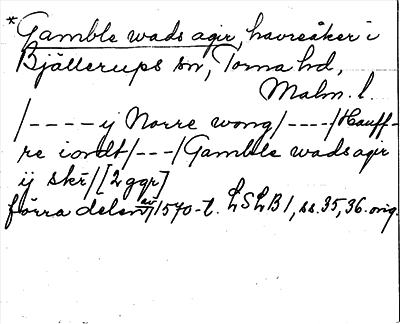 *Gamble wads agir, havreåker i
Bjällerups sn, Torna hd,
Malm. l.
/----y Norre wong/----/Hauff-
re iordt/---/Gamble wads agir
ij skr/[2 ggr]
förra delen av 1570-t. LSLB1, ss. 35, 36. orig.